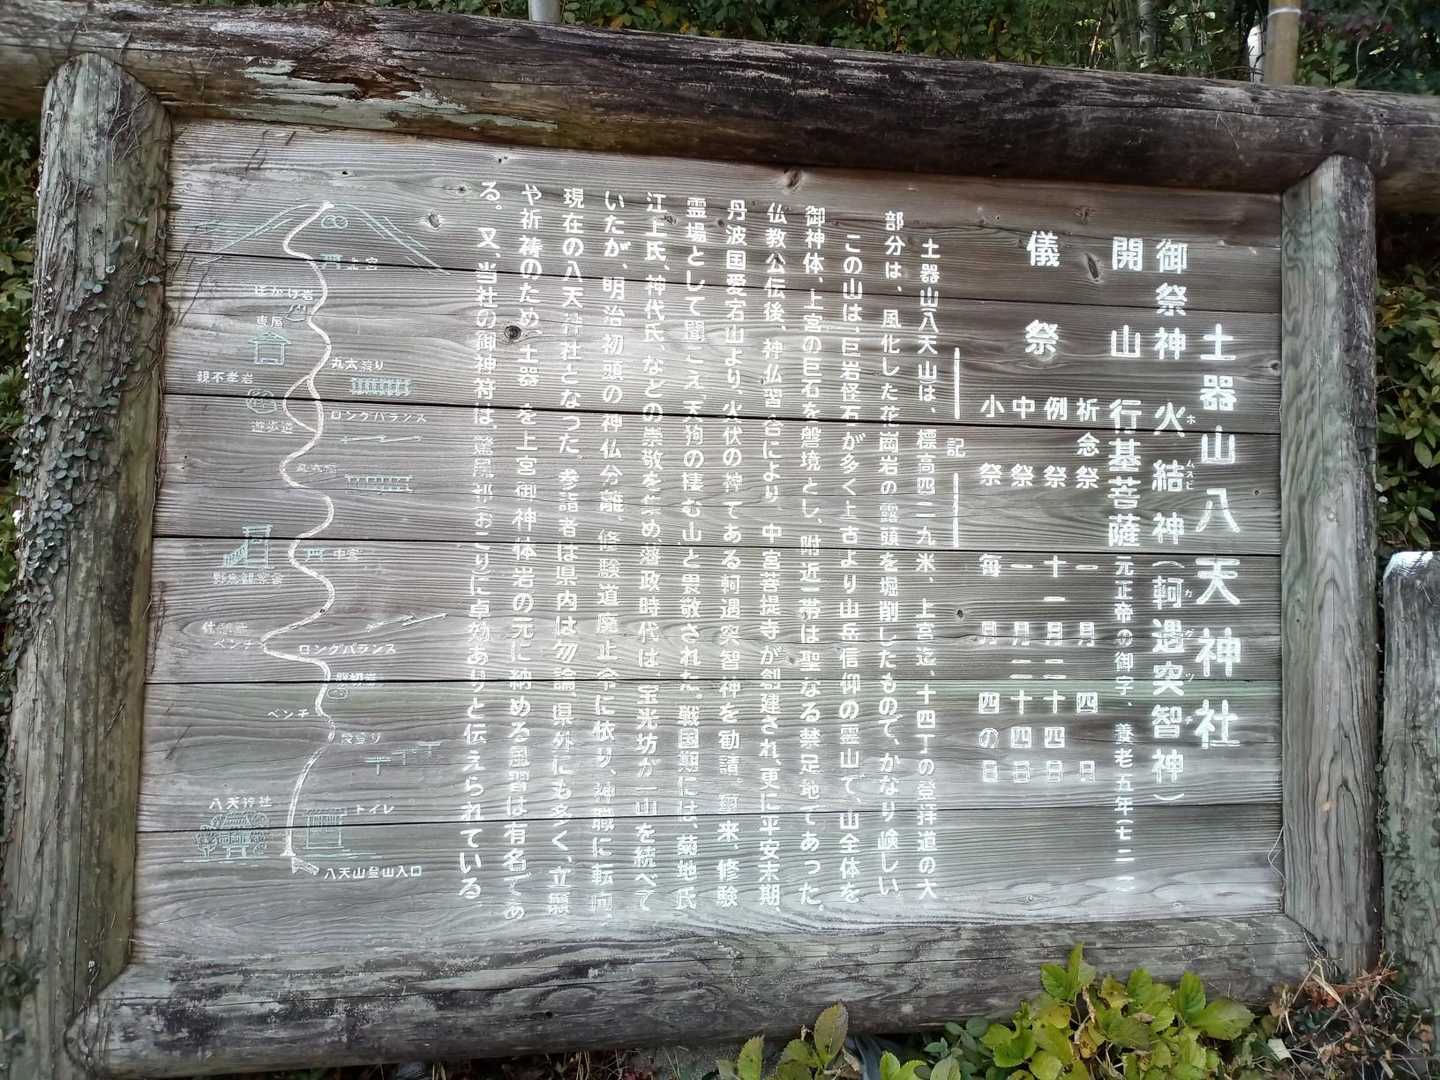 土器山八天神社
御祭神 火結神(軻遇突智神)
ホ ムスビ カ グ ツ チ
開山 行基菩薩 元正帝の御字、養老五年(七二一)
儀祭
祈念祭 一月 四日
例祭 十一月二十四日
中祭 一月二十四日
小祭 毎月 四の日
記
土器山八天山は、標高四二九米、上宮迄、十四丁の登拝道の大
部分は、風化した花崗岩の露頭を堀削したもので、かなり嶮しい。
この山は、巨岩怪石が多く上古より山岳信仰の霊山で、山全体を
御神体、上宮の巨石を磐境とし、附近一帯は聖なる禁足地であった。
仏教公伝後、神仏習合により、中宮菩提寺が創建され、更に平安末期、
丹波国愛宕山より、火伏の神である軻遇突智神を勧請、爾来、修験
霊場として聞こえ、天狗の棲む山と畏敬された。戦国期には、菊地氏
江上氏、神代氏、などの崇敬を集め、藩政時代は、宝光坊が一山を統べて
いたが、明治初頭の神仏分離、修験道廃止令に依り、神職に転向、
現在の八天神社となった。参詣者は県内は勿論、県外にも多く、立願
や祈祷のため、土器を上宮御神体岩の元に納める風習は有名であ
る。又、当社の御神符は、驚風おこりに卓効ありと伝えられている。
上宮
ぼかけ岩
東屋
親不孝岩
丸太渡り
ロングバランス
遊歩道
中宮
野鳥観察舎
ベンチ
ロングバランス
ベンチ
八天神社
トイレ
八天山登山入口